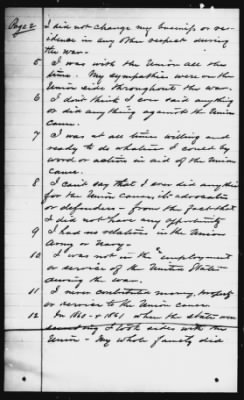 Page 2
I did not change my business or res-
idence in any other respect during
the war.
5 I was with the Union all the
time. My sympathies were on the
Union side throughout the war.
6 I don't think I ever said anything
or did anything against the Union
Cause.
7 I was at all times willing and
ready to do whatever I could by
word or action in aid of the Union
cause.
8 I can't say that I ever did anything
for the Union cause, its advocates
or defenders - from the fact that
I did not have any opportunity
9 I had no relatives in the Union
Army or Navy.
10 I was not in the employment
or service of the United States
during the war.
11 I never contributed money, property
or service to the Union cause
12 In 1860 & 1861 when the state was
I took sides with the
Union - My whole family did